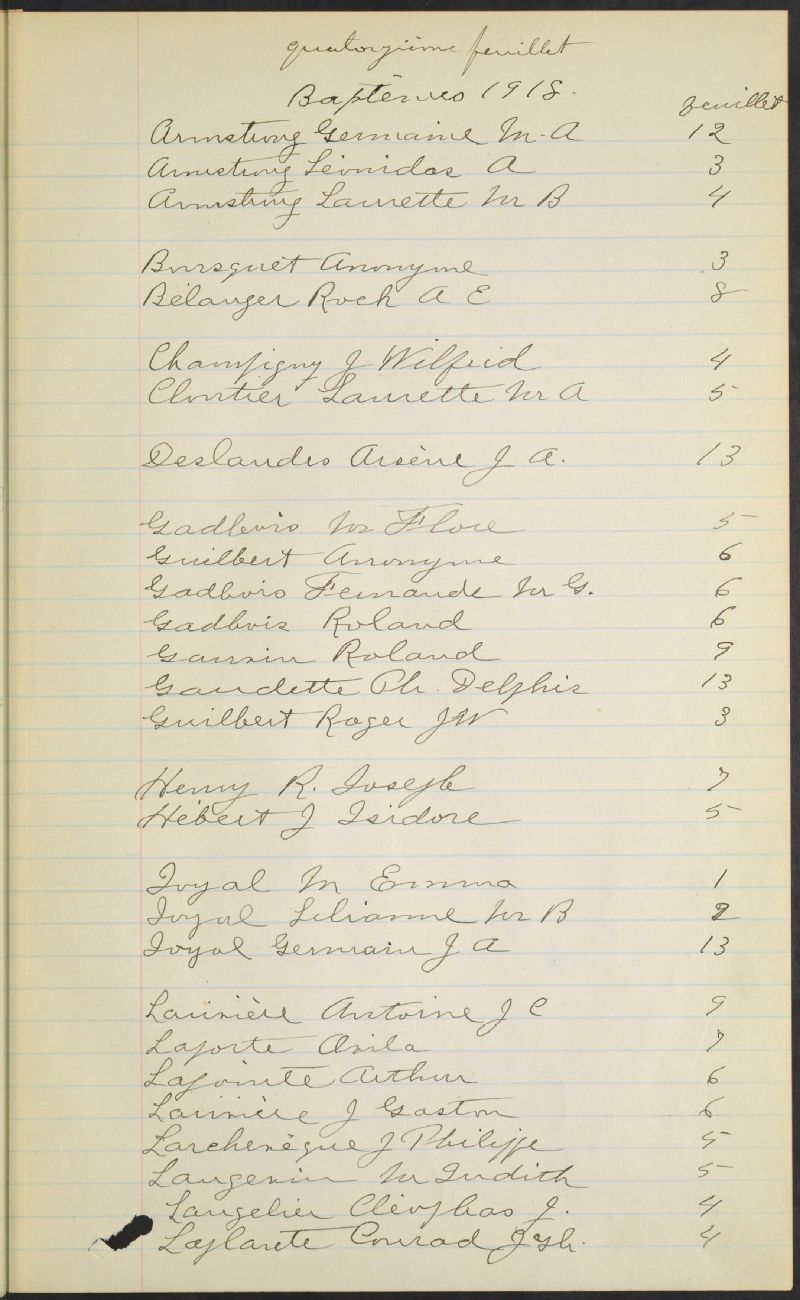 quatorzième feuillet
Baptêmes 1918.
feuillet
Armstrong Germaine M. A 12
Armstrong Léonidas A 3
Armstrong Laurette M B 4
Bousquet Anonyme 3
Bélanger Roch A E 8
Champigny J Wilfrid 4
Cloutier Laurette M A 5
Deslandes Arsène J A. 13
Gadbois M Flore 5
Guilbert Anonyme 6
Gadbois Fernande M G. 6
Gadbois Roland 6
Gauvin Roland 9
Gaudette Ph. Delphis 13
Guilbert Roger J W 3
Henry R. Joseph 7
Hébert J Isidore 5
Joyal M Emma 1
Joyal Lilianne M B 2
Joyal Germain J A 13
Larivière Antoine J C 9
Laporte Avila 7
Lapointe Arthur 6
Larivière J Gaston 6
Larchevêque J Philippe 5
Langevin M Judith 5
Langelier Cléophas J. 4
Laplante Conrad Jph. 4